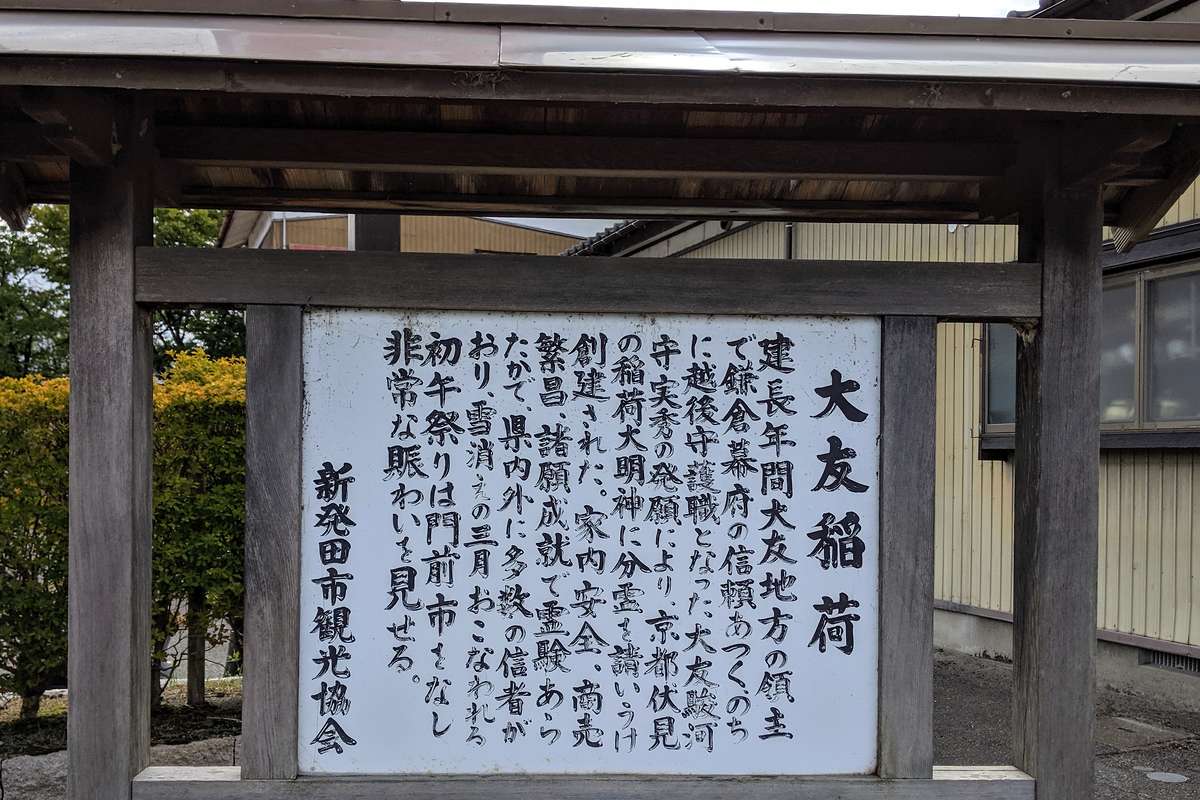 大友稲荷
建長年間大友地方の領主
で鎌倉幕府の信頼あつく、のち
に越後守護職となった大友駿河
守実秀の発願により、京都伏見
の稲荷大明神に分霊を請いうけ
創建された。家内安全、商売
繁昌、諸願成就で霊験あら
たかで、県内外に多数の信者が
おり、雪消えの三月おこなわれる
初午祭りは門前市をなし
非常な賑わいを見せる。
新発田市観光協会